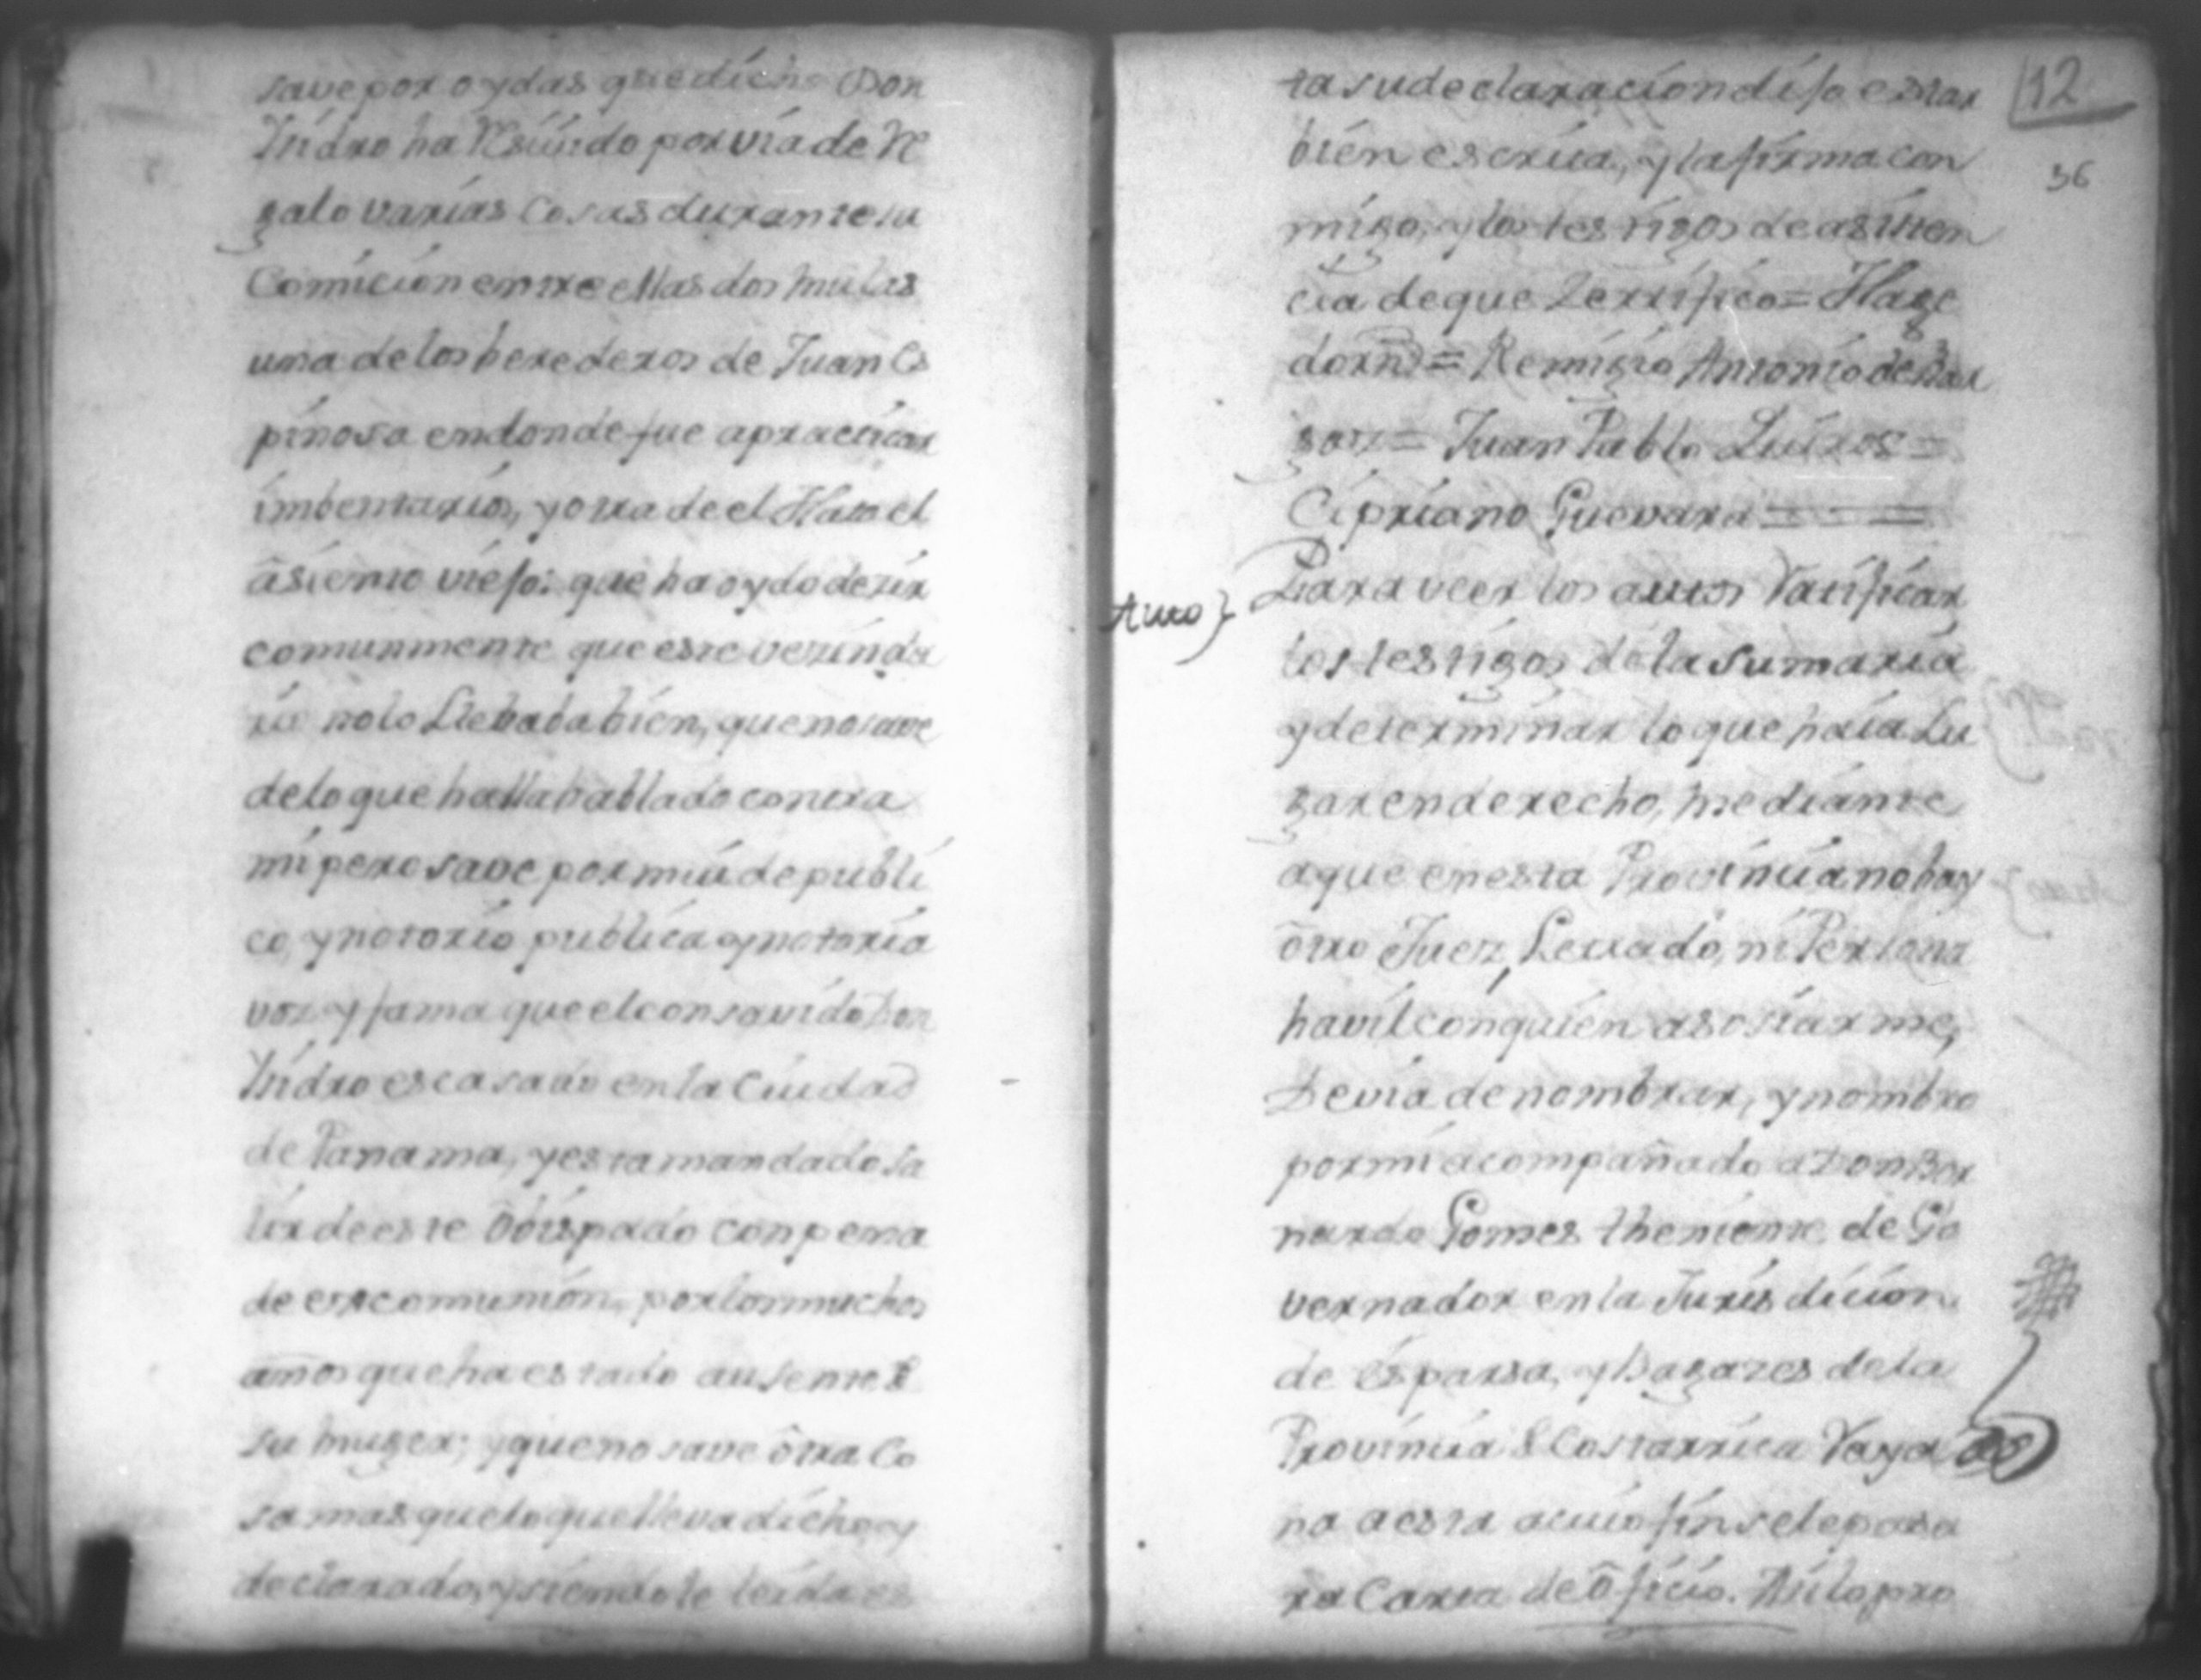 save por oydas que dicho Don
Ysidro ha Resiuido por via de Re
galo varias Cosas durante su
Comicion entre ellas dos mulas
una de los herederos de Juan Es
pinosa en donde fue apracticar
imbentarios, y otra de el Hato el
asiento viejo: que ha oydo dezir
comunmente que este vezinda
rio nolo Llebaba bien, que no save
delo que halla hablado contra
mi pero save por mui de publi
co, y notorio publica y notoria
voz y fama que el consavido Don
Ysidro es casado en la Ciudad
de Panama, y esta mandado sa
lir de este Obispado con pena
de excomunion, por los muchos
años que ha estado ausente de
su muger; y que no save otra Co
sa mas que lo que lleva dicho, y
declarado, y siendole leida es
12
36
ta su declaracion dijo estar
bien escrita, y la firma con
migo, y los testigos de asisten
cia de que Zertifico = Haze
dor = Remigio Antonio de Bar
gas = Juan Pablo Quiros =
Cipriano Guevara =
Auto}
Para veer los autos Ratificar
los testigos de la sumaria
y determinar lo que haia Lu
gar en derecho, mediante
aque en esta Provincia no hay
otro Juez Letrado, ni Persona
havil con quien asosiarme,
Devia de nombrar, y nombro
por mi acompañado a Don Ber
nardo Gomes theniente de Go
vernador en la Jurisdicion
de Esparsa, y Bagazes dela
Provincia de Costarrica
na aesta acuio fin sele pasa
ra Carta de Oficio. Asilo pro